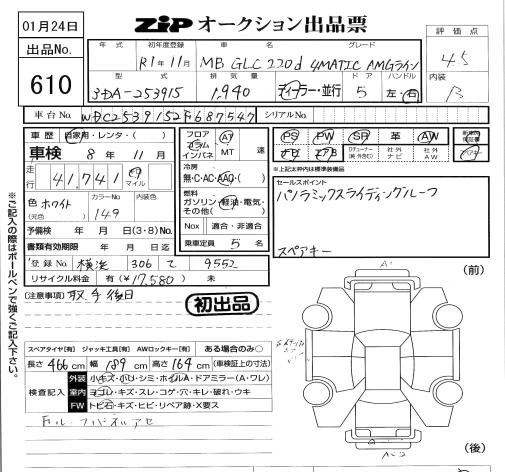 01月24日
出品No.
610
ZIP オークション出品票
評価点
4.5
内装
B
年式 初年度登録 車名 グレード
R1年11月 MB GLC 220d 4MATIC AMGライン
型式 排気量 ドア ハンドル
3DA-253915 1,940 ディーラー・並行 5 左・右
車台No. WDC2539152F687547 シリアルNo.
車歴 自家用・レンタ・( )
車検 8年11月
走行 41,741 km マイル
色 ホワイト (元色) カラーNo 149 内装色
予備検 年 月 日(3・8)No.
書類有効期限 年 月 日迄
登録No. 横浜 306 て 9552
リサイクル料金 有(¥17,580) 無
フロア コラム インパネ AT MT 速
冷房 無・C・AC・AAC・( )
燃料 ガソリン・軽油・電気・その他( )
Nox 適合・非適合
乗車定員 5名
PS PW SR 革 AW
ナビ エアB 社外ナビ 社外AW
新車時保証書
スペアキー
※上記太枠内は標準装備品
セールスポイント
パノラミックスライディングルーフ
スペアキー
(注意事項) 取手後日
初出品
スペアタイヤ[有] ジャッキ工具[有] AWロックキー[有] ある場合のみ○
長さ 466 cm 幅 189 cm 高さ 164 cm (車検証上の寸法)
検査記入
外装 小キズ・小U・シミ・ホイルA・ドアミラー(A・ワレ)
室内 ヨゴレ・キズ・スレ・コゲ・穴・キレ・破れ・ウキ
FW トビ石・キズ・ヒビ・リペア跡・X要ス
※ご記入の際はボールペンで強くご記入下さい。
(前)
A1
(後)